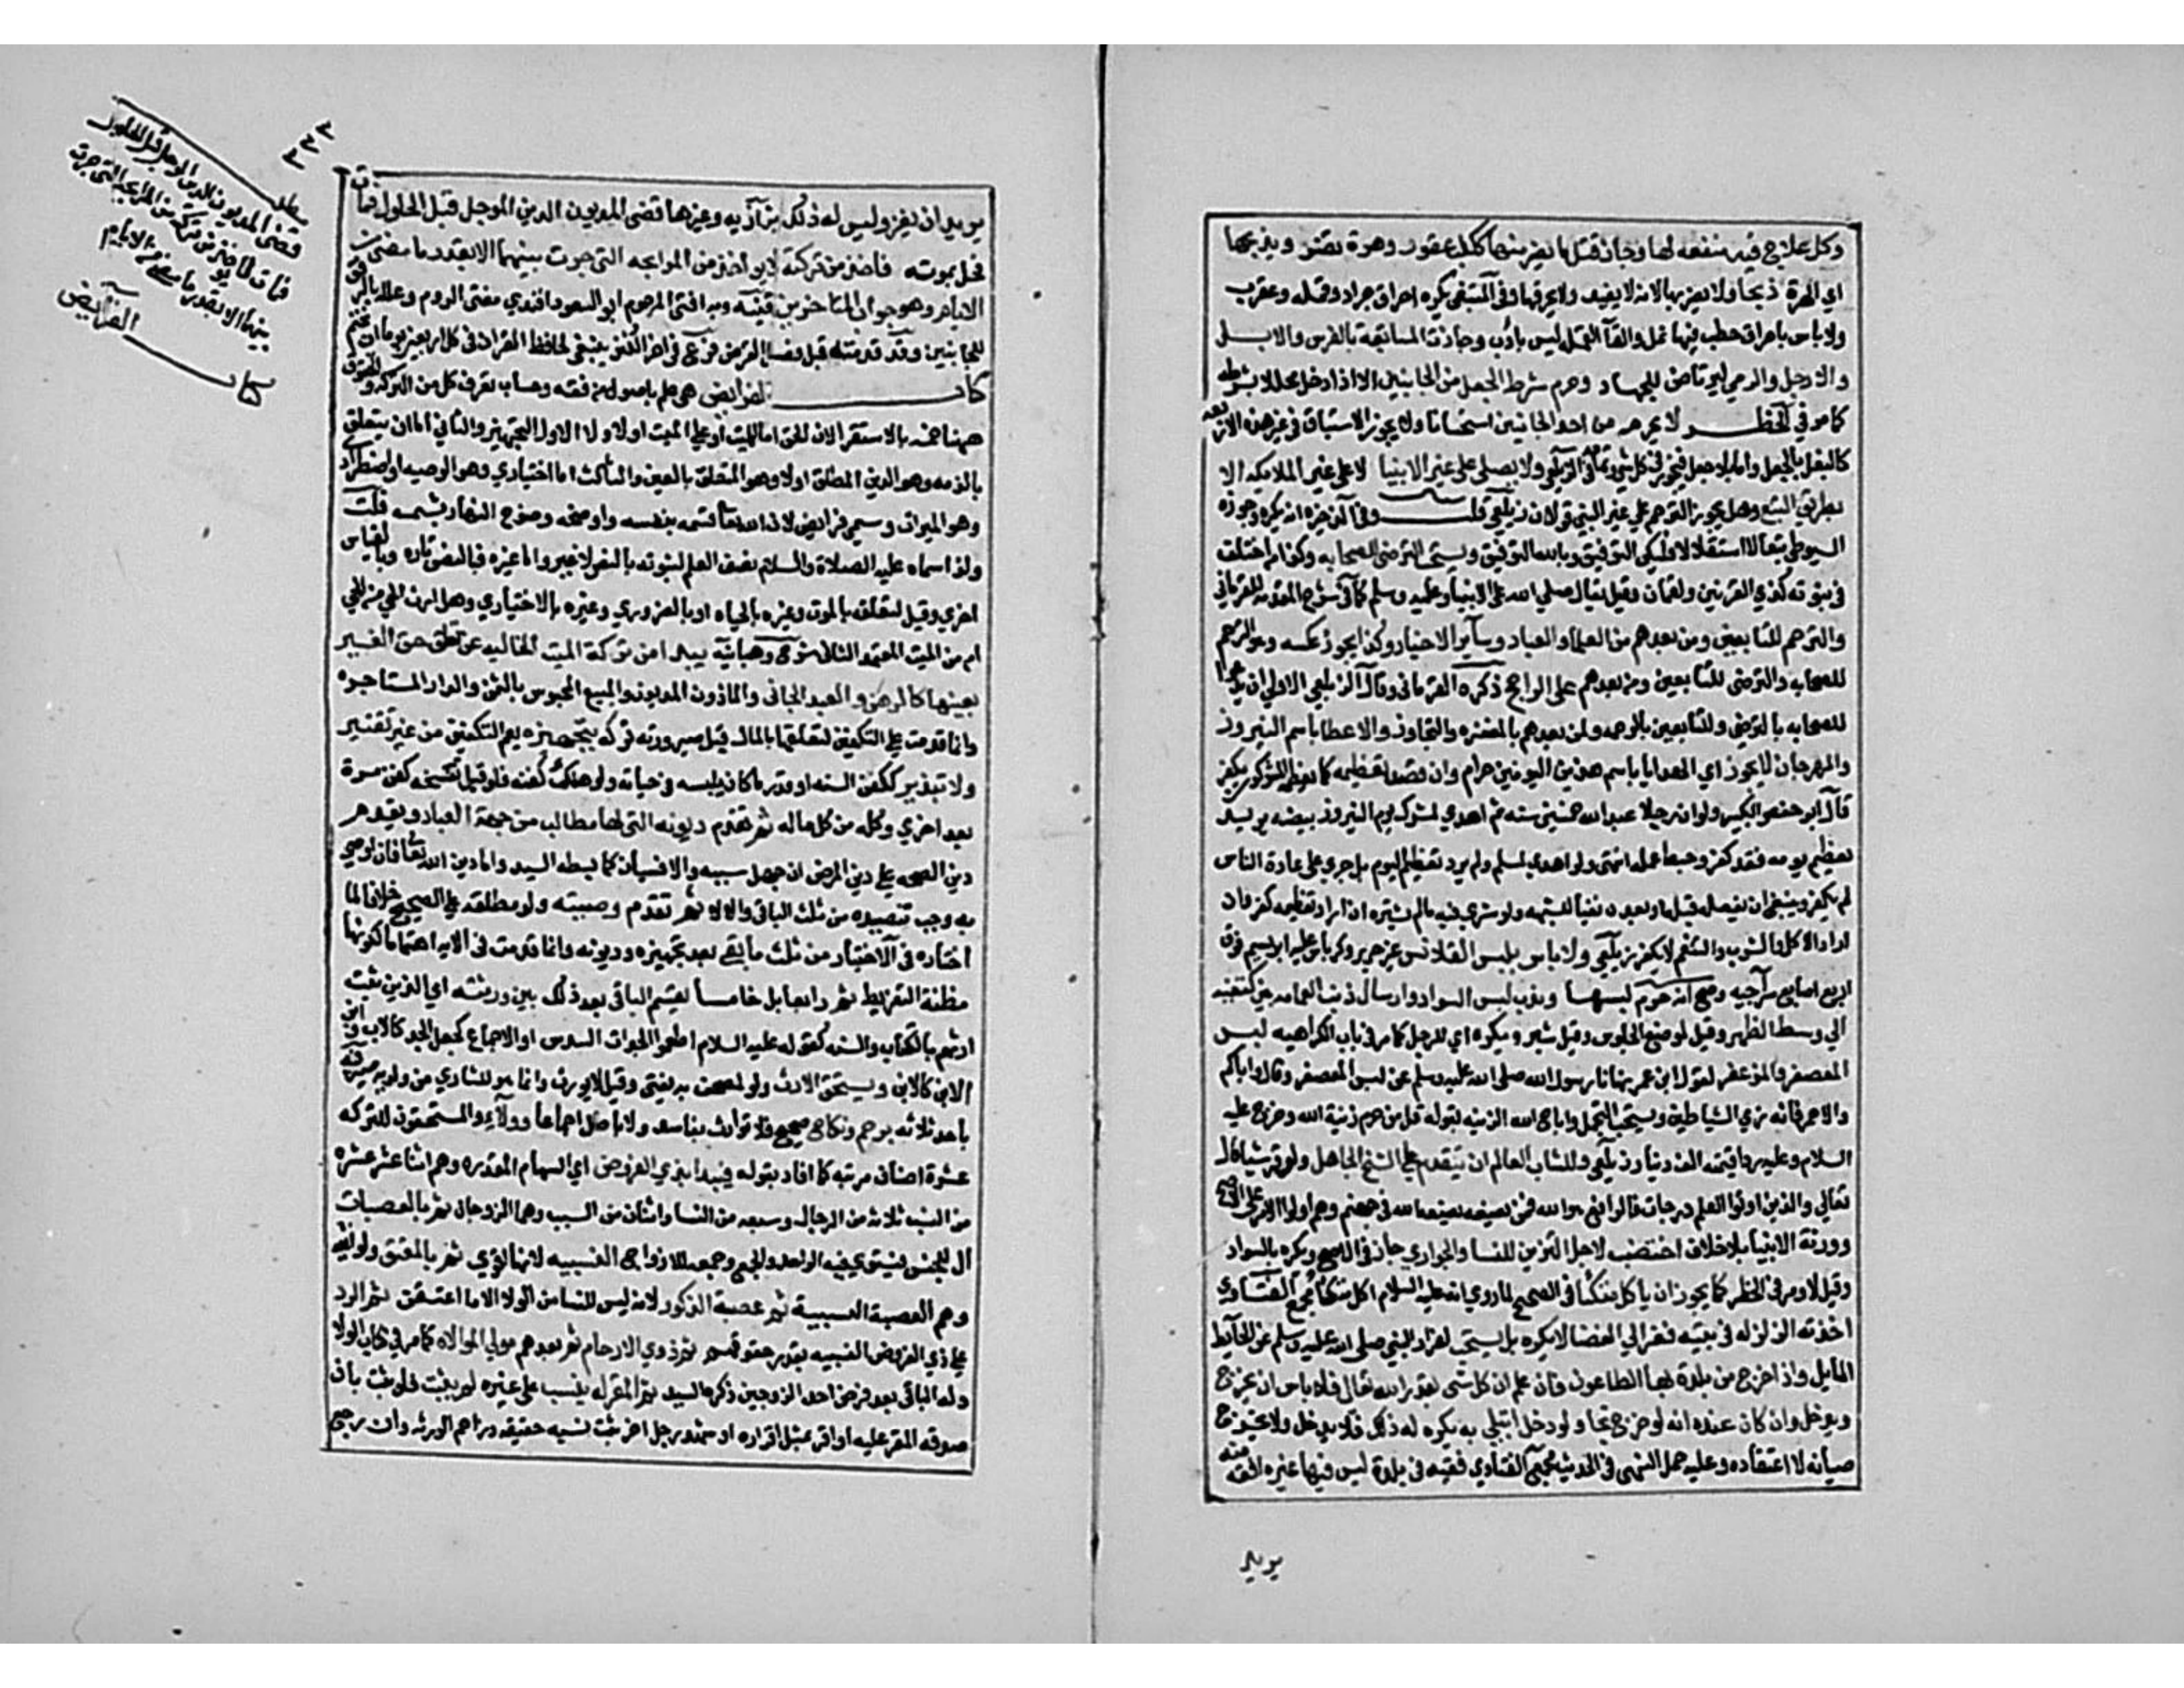 وكل علاج فيه منفعه لها وجاز قتل ما يضر منها ككلب عقور وهرة تضر ويذبحها
اي الهرة ذبحا ولا يضربها لانه لا يفيد ولا يحرقها وفي المبتغى يكره احراق جراد وقمل وعقرب
ولا باس باحراق حطب فيها نمل والقاء القمل ليس بادب وجازت المسابقة بالفرس والابل
والارجل والرمي ليرتاض للجهاد وحرم شرط الجعل من الجانبين الا اذا ادخل محللا بشرطه
كما مر في الحظر لا يحرم من احد الجانبين استحسانا ولا يجوز الاستباق في غير هذه الاربعه
كالبغل بالجعل واما بلا جعل فيجوز في كل شي وتمامه في الزيلعي ولا يصلى على غير الانبيا ولا على غير الملايكه الا
بطريق التبع وهل يجوز الترحم على غير النبي قولان زيلعي قلت وفي الذخيره انه يكره وجوزه
السيوطي تبعا لا استقلالا فليكن التوفيق وبالله التوفيق ويستحب الترضي للصحابه وكذا من اختلف
في نبوته كذي القرنين ولقمان وقيل يقال صلى الله على الانبيا وعليه وسلم كما في شرح المقدمه للقرماني
والترحم للتابعين ومن بعدهم من العلما والعباد وساير الاخيار وكذا يجوز عكسه وهو الترحم
للصحابه والترضي للتابعين ومن بعدهم على الراجح ذكره القرماني وقال الزيلعي الاولى ان يدعوا
للصحابه بالترضي وللتابعين بالرحمه ولمن بعدهم بالمغفره والتجاوز والاعطا باسم النيروز
والمهرجان لا يجوز اي الهدايا باسم هذين اليومين حرام وان قصد تعظيمه كما يعظمه المشركون يكفر
قال ابو حفص الكبير ولو ان رجلا عبد الله خمسين سنه ثم اهدى لمشرك يوم النيروز بيضه يريد
تعظيم يومه فقد كفر وحبط عمله انتهى ولو اهدى لمسلم ولم يرد تعظيم اليوم بل جرى على عادة الناس
لم يكفر وينبغي ان يفعله قبله او بعده نفيا للشبهه ولو شرى فيه ما لم يشتره ان اراد تعظيمه كفر وان
اراد الاكل والشرب والتنعم لا يكفر زيلعي ولا باس بلبس القلانس غير حرير وكرباس عليه ابريسم فوق
اربع اصابع سراجيه وصح انه حرم لبسها وندب لبس السواد وارسال ذنب العمامه بين كتفيه
الى وسط الظهر وقيل لموضع الجلوس وقيل شبر ويكره اي للرجل كما مر في باب الكراهيه لبس
المعصفر والمزعفر لقول ابن عمر نهانا رسول الله صلى الله عليه وسلم عن لبس المعصفر وقال واياكم
والاحمر فانه زي الشياطين ويستحب التجمل واباح الله الزينه بقوله قل من حرم زينة الله وخرج عليه
السلام وعليه ردا قيمته الف دينار زيلعي وللشاب العالم ان يتقدم على الشيخ الجاهل ولو قرشيا قال
تعالى والذين اوتوا العلم درجات فالرافع هو الله فمن يضعه يضعه الله في جهنم وهم اولوا الامر على الاصح
وورثة الانبيا بلا خلاف اختضب لاجل التزين للنسا والجواري جاز في الاصح ويكره بالسواد
وقيل لا ومر في الحظر كما يجوز ان ياكل متكئا في الصحيح لما روي انه عليه السلام اكل متكئا مجمع الفتاوى
اخذته الزلزله في بيته ففر الى الفضا لا يكره بل يستحب لفرار النبي صلى الله عليه وسلم عن الحايط
المايل واذا خرج من بلدة بها الطاعون فان علم ان كل شي بقدر الله تعالى فلا باس ان يخرج
ويدخل وان كان عنده انه لو خرج نجا ولو دخل ابتلي به يكره له ذلك فلا يدخل ولا يخرج
صيانة لاعتقاده وعليه حمل النهى في الحديث مجمع الفتاوى فقيه في بلدة ليس فيها غيره افقه منه
يريد
٣٣٣
يريد ان يغزو ليس له ذلك بزازيه وغيرها قضى المديون الدين الموجل قبل الحلول فمات
فحل بموته فاخذ من تركته لا ياخذ من المرابحه التي جرت بينهما الا بقدر ما مضى من
الايام وهو جواب المتاخرين قنيه وبه افتى المرحوم ابو السعود افندي مفتي الروم وعلله بالرفق
للجانبين وقد قدمته قبل فصل القرض فرع في اخر الكنز ينبغي لحافظ القران في كل اربعين يوما ان يختم
كتاب الفرايض هي علم باصول من فقه وحساب تعرف كل من التركه والحقوق
ههنا خمسه بالاستقرا لان الحق اما للميت او على الميت اولا ولا الاول التجهيز والثاني اما ان يتعلق
بالذمه وهو الدين المطلق اولا وهو المتعلق بالعين والثالث اما اختياري وهو الوصيه او اضطراري
وهو الميراث وسمي فرايض لان الله تعالى قسمه بنفسه واوضحه وضوح النهار بشمسه قلت
ولذا سماه عليه الصلاة والسلام نصف العلم لثبوته بالنص لا غير واما غيره فبالنص تاره وبالقياس
اخرى وقيل لتعلقه بالموت وغيره بالحياه او بالضروري وغيره بالاختياري وهل ارث الحي من الحي
ام من الميت المعتمد الثاني شرح وهبانيه يبدا من تركة الميت الخاليه عن تعلق حق الغير
بعينها كالرهن والعبد الجاني والماذون المديون والمبيع المحبوس بالثمن والدار المستاجره
وانما قدمت على التكفين لتعلقها بالمال قبل صيرورته تركه بتجهيزه يعم التكفين من غير تقتير
ولا تبذير ككفن السنه او قدر ما كان يلبسه في حياته ولو هلك كفنه فلو قبل تفسخه كفن مرة
بعد اخرى وكله من كل ماله ثم تقدم ديونه التي لها مطالب من جهة العباد ويقدم
دين الصحه على دين المرض ان جهل سببه والا فسيان كما بسطه السيد واما دين الله تعالى فان اوصى
به وجب تنفيذه من ثلث الباقي والا لا ثم تقدم وصيته ولو مطلقه على الصحيح خلافا لما
اختاره في الاختيار من ثلث ما بقي بعد تجهيزه وديونه وانما قدمت في الايه اهتماما لكونها
مظنة التفريط ثم رابعا بل خامسا يقسم الباقي بعد ذلك بين ورثته اي الذين ثبت
ارثهم بالكتاب والسنه كقوله عليه السلام اطعموا الجدات السدس او الاجماع كجعل الجد كالاب وابن
الابن كالابن ويستحق الارث ولو لمصحف به يفتى وقيل لا يورث وانما هو للقاري من ولديه صيرفيه
باحد ثلاثه برحم ونكاح صحيح فلا توارث بفاسد ولا باطل اجماعا وولاء والمستحقون للتركه
عشرة اصناف مرتبه كما افاد بقوله فيبدا بذي الفروض اي السهام المقدره وهم اثنا عشر عشره
من النسب ثلاثه من الرجال وسبعه من النسا واثنان من السبب وهما الزوجان ثم بالعصبات
ال للجنس فيستوي فيه الواحد والجمع وجمعه للازدواج النسبيه لانها اقوى ثم بالمعتق ولو انثى
وهو العصبة السببية ثم عصبة الذكور لانه ليس للنسا من الولا الا ما اعتقن ثم الرد
على ذي الفروض النسبيه بقدر حقوقهم ثم ذوي الارحام ثم بعدهم مولى الموالاه كما مر في كتاب الولا
وله الباقي بعد فرض احد الزوجين ذكره السيد ثم المقر له بنسب على غيره لم يثبت فلو ثبت بان
صدقه المقر عليه او اقر بمثل اقراره او شهد رجل اخر ثبت نسبه حقيقه وزاحم الورثه وان رجع
مطلب
قضى المديون الدين الموجل قبل الحلول
فمات فاخذ من تركته من المرابحه التي جرت
بينهما الا بقدر ما مضى من الايام
كتاب الفرايض